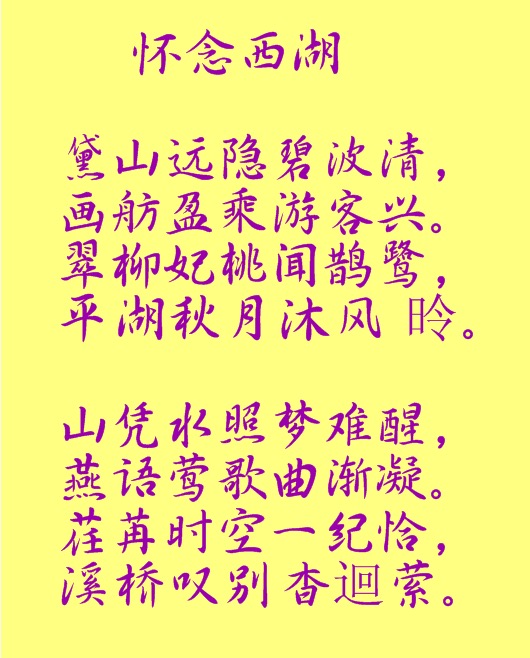 怀念西湖
黛山远隐碧波清，
画舫盈乘游客兴。
翠柳妃桃闻鹊鹭，
平湖秋月沐风 昑。
山凭水照梦难醒，
燕语莺歌曲渐凝。
荏苒时空一纪恰，
溪桥叹别杳迴萦。